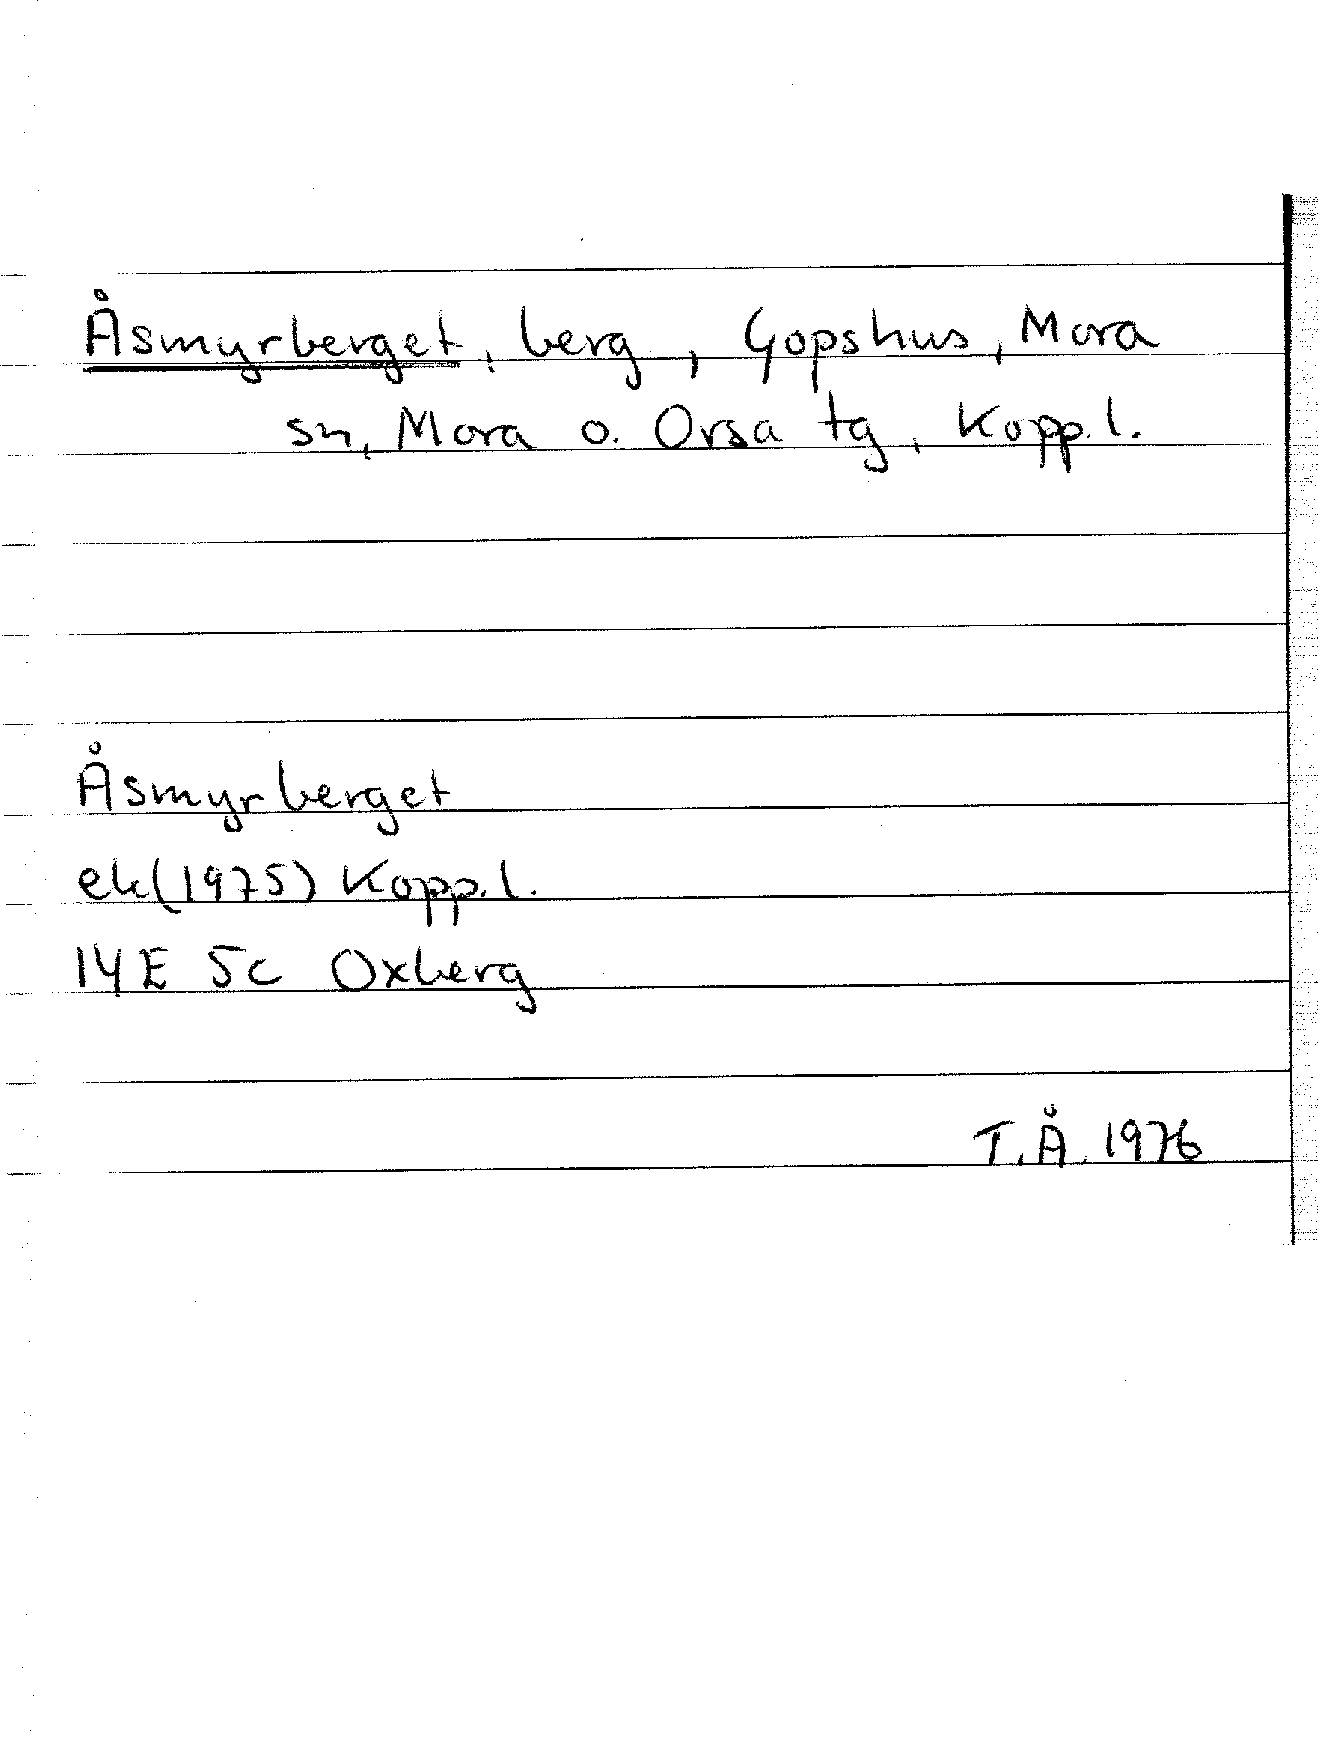 Åsmyrberget, berg, Gopshus, Mora
sn, Mora o. Orsa tg, Kopp. l.
Åsmyrberget
ek (1975) Kopp. l.
14E 5c Oxberg
T.Å. 1976